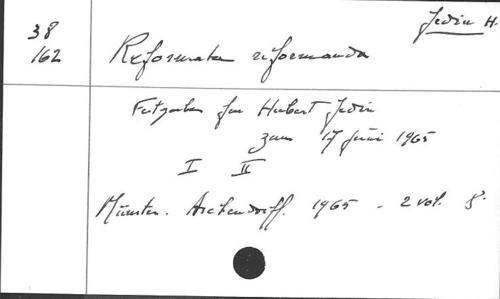 Jedin H.
38
162
Reformata reformanda
Festgabe für Hubert Jedin
zum 17 Juni 1965
I II
Münster. Aschendorff. 1965 - 2 vol. 8.